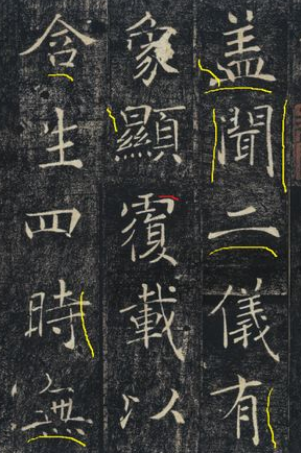 盖聞二儀有
象顯覆載以
含生四時無